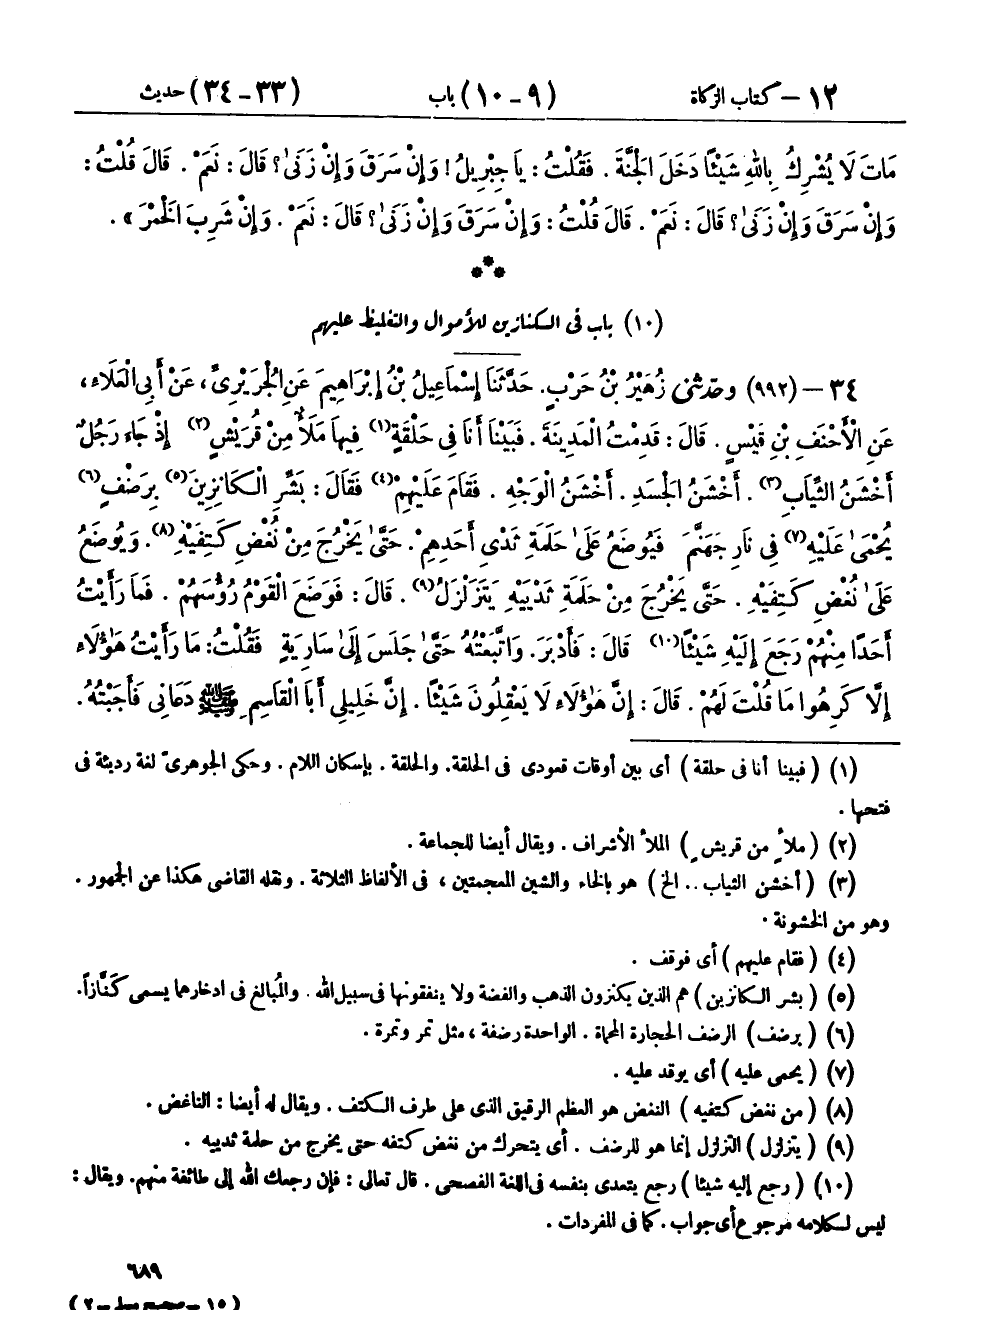 ١٢ – كتاب الزكاة (٩ – ١٠) باب (٣٣ – ٣٤) حديث
مَاتَ لَا يُشْرِكُ بِاللهِ شَيْئًا دَخَلَ الْجَنَّةَ . فَقُلْتُ : يَا جِبْرِيلُ ! وَإِنْ سَرَقَ وَإِنْ زَنَىٰ ؟ قَالَ : نَعَمْ . قَالَ قُلْتُ :
وَإِنْ سَرَقَ وَإِنْ زَنَىٰ ؟ قَالَ : نَعَمْ . قَالَ قُلْتُ : وَإِنْ سَرَقَ وَإِنْ زَنَىٰ ؟ قَالَ : نَعَمْ . وَإِنْ شَرِبَ الْخَمْرَ » .
***
(١٠) باب فى الكنازين للأموال والتغليظ عليهم
٣٤ – (٩٩٢) وحدثنى زُهَيْرُ بْنُ حَرْبٍ. حَدَّثَنَا إِسْمَاعِيلُ بْنُ إِبْرَاهِيمَ عَنِ الْجُرَيْرِىِّ ، عَنْ أَبِى الْعَلَاءِ ،
عَنِ الْأَحْنَفِ بْنِ قَيْسٍ . قَالَ : قَدِمْتُ الْمَدِينَةَ . فَبَيْنَا أَنَا فِى حَلْقَةٍ(١) فِيهَا مَلَأٌ مِنْ قُرَيْشٍ(٢) إِذْ جَاءَ رَجُلٌ
أَخْشَنُ الثِّيَابِ(٣) . أَخْشَنُ الْجَسَدِ . أَخْشَنُ الْوَجْهِ . فَقَامَ عَلَيْهِمْ(٤) فَقَالَ : بَشِّرِ الْكَانِزِينَ(٥) بِرَضْفٍ(٦)
يُحْمَىٰ عَلَيْهِ(٧) فِى نَارِ جَهَنَّمَ فَيُوضَعُ عَلَىٰ حَلَمَةِ ثَدْىِ أَحَدِهِمْ. حَتَّىٰ يَخْرُجَ مِنْ نُغْضِ كَتِفَيْهِ(٨). وَيُوضَعُ
عَلَىٰ نُغْضِ كَتِفَيْهِ . حَتَّىٰ يَخْرُجَ مِنْ حَلَمَةِ ثَدْيَيْهِ يَتَزَلْزَلُ(٩) . قَالَ : فَوَضَعَ الْقَوْمُ رُؤُسَهُمْ . فَمَا رَأَيْتُ
أَحَدًا مِنْهُمْ رَجَعَ إِلَيْهِ شَيْئًا(١٠) قَالَ : فَأَدْبَرَ. وَاتَّبَعْتُهُ حَتَّىٰ جَلَسَ إِلَىٰ سَارِيَةٍ فَقُلْتُ: مَا رَأَيْتُ هَؤُلَاءِ
إِلَّا كَرِهُوا مَا قُلْتَ لَهُمْ . قَالَ : إِنَّ هَؤُلَاءِ لَا يَعْقِلُونَ شَيْئًا . إِنَّ خَلِيلِى أَبَا الْقَاسِمِ ﷺ دَعَانِى فَأَجَبْتُهُ .
(١) ( فبينا أنا فى حلقة ) أى بين أوقات قعودى فى الحلقة. والحلقة . بإسكان اللام . وحكى الجوهرىّ لغة رديئة فى
فتحها .
(٢) ( ملأٌ من قريشٍ ) الملأ الأشراف . ويقال أيضا للجماعة .
(٣) ( أخشن الثياب .. الخ ) هو بالخاء والشين المعجمتين ، فى الألفاظ الثلاثة . ونقله القاضى هكذا عن الجمهور .
وهو من الخشونة .
(٤) ( فقام عليهم ) أى فوقف .
(٥) ( بشر الكانزين ) هم الذين يكنزون الذهب والفضة ولا ينفقونها فى سبيل الله . والمُبالغ فى ادخارهما يسمى كَنَّازاً.
(٦) ( برضف ) الرضف الحجارة المحماة . الواحدة رضفة ، مثل تمر وتمرة .
(٧) ( يحمى عليه ) أى يوقد عليه .
(٨) ( من نغض كتفيه ) النغض هو العظم الرقيق الذى على طرف الكتف . ويقال له أيضا : الناغض .
(٩) ( يتزلزل ) التزلزل إنما هو للرضف . أى يتحرك من نغض كتفه حتى يخرج من حلمة ثدييه .
(١٠) ( رجع إليه شيئا ) رجع يتعدى بنفسه فى اللغة الفصحى . قال تعالى : فإن رجعك الله إلى طائفة منهم. ويقال :
ليس لكلامه مرجوع أى جواب . كما فى المفردات .
٦٨٩
( ١٥ – صحيح مسلم – ٢ )